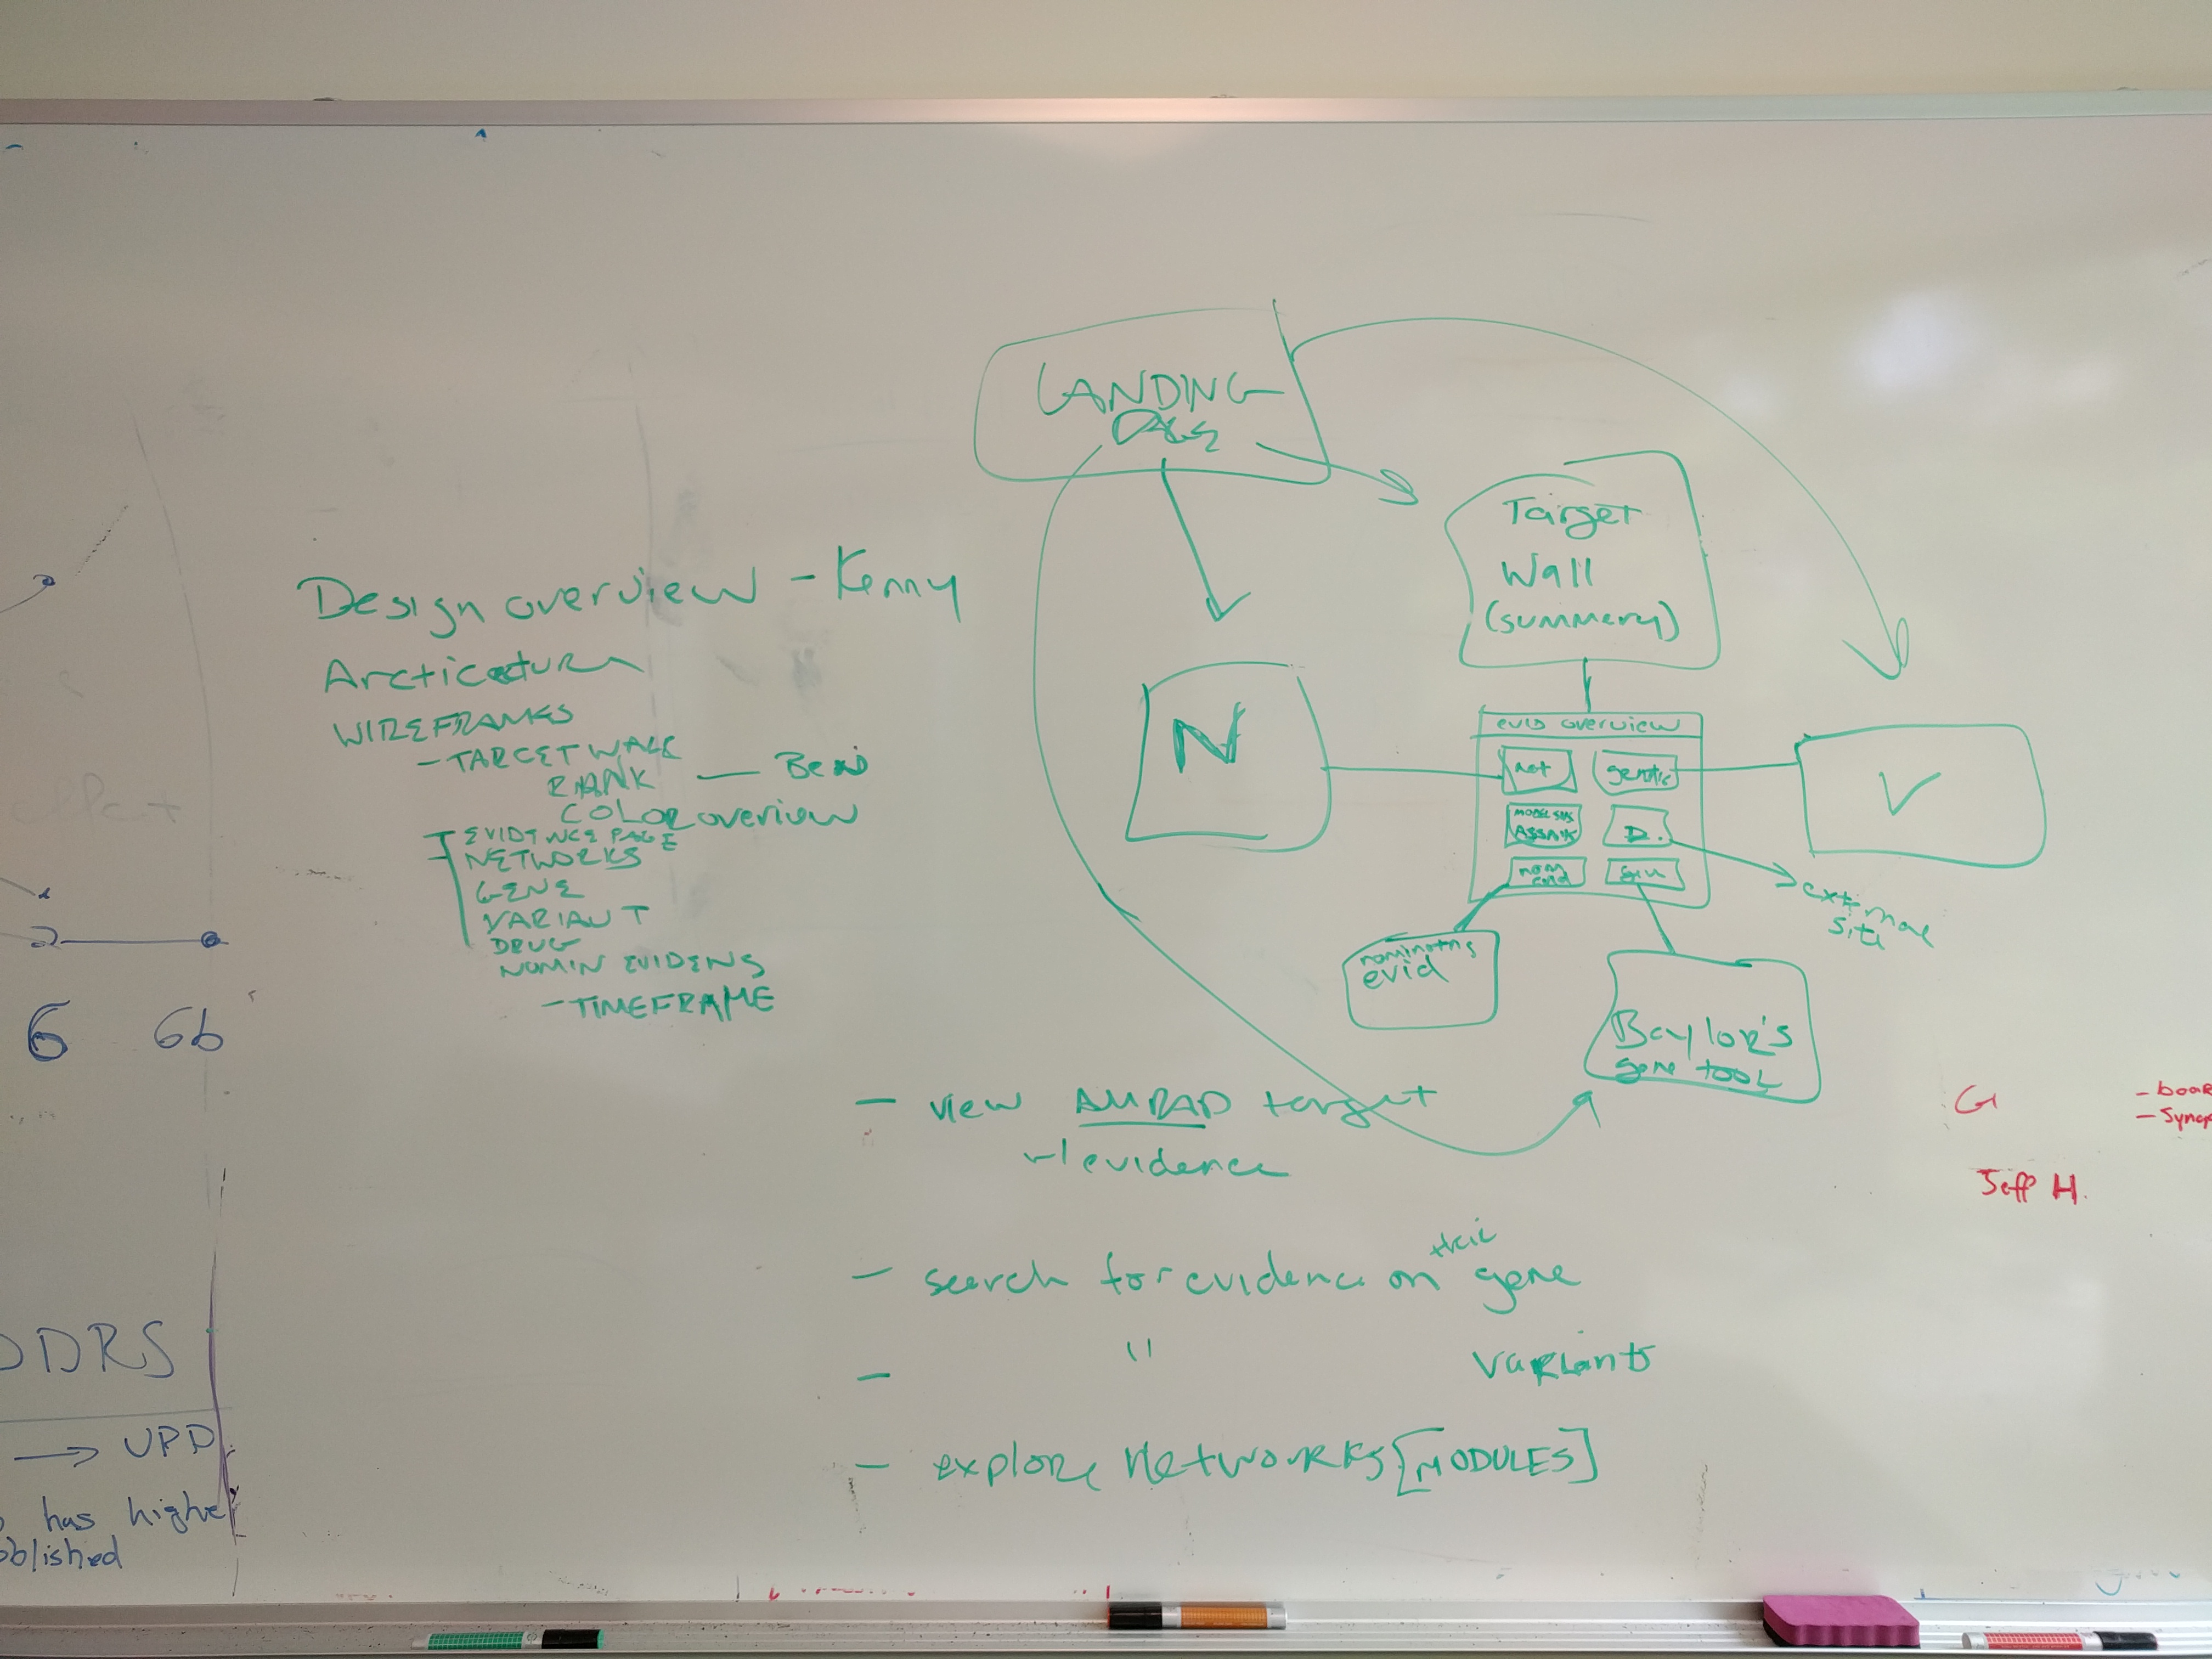 LANDING
PAGE
Target
Wall
(summery)
Design overview - Kenny
Arcticature
WIREFRAMES
- TARGET WALL
RANK
COLOR overview
EVIDENCE PAGE
NETWORKS
GENE
VARIANT
DRUG
NOMIN EVIDENS
- TIMEFRAME
N
evid overview
net
genetic
MODEL SYS
ASSAYS
D.
nom
evid
V
external
site
nominating
evid
Baylor's
gene tool
- view AMPAD target
w/ evidence
- search for evidence on their gene
- " variants
- explore networks [MODULES]
6 6b
DDRS
→ UPD
has higher
blished
G
- boar
- Synap
Jeff H.